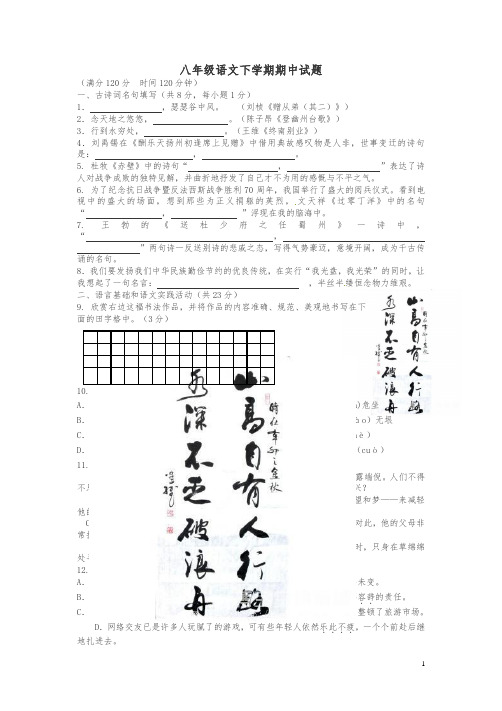 八年级语文下学期期中试题
（满分120分 时间120分钟）
一、古诗词名句填写（共8分，每小题1分）
1. ，瑟瑟谷中风。 （刘桢《赠从弟（其二）》）
2. 念天地之悠悠， 。（陈子昂《登幽州台歌》）
3. 行到水穷处， 。（王维《终南别业》）
4. 刘禹锡在《酬乐天扬州初逢席上见赠》中借用典故感叹物是人非，世事变迁的诗句
是： ， 。
5. 杜牧《赤壁》中的诗句“ ， ”表达了诗
人对战争成败的独特见解，并曲折地抒发了自己才不为用的感慨与不平之气。
6. 为了纪念抗日战争暨反法西斯战争胜利70周年，我国举行了盛大的阅兵仪式。看到电
视中的盛大的场面，想到那些为正义捐躯的英烈，文天祥《过零丁洋》中的名句
“ ， ”浮现在我的脑海中。
7. 王勃的《送杜少府之任蜀州》一诗中，
“ ，
”两句诗一反送别诗的悲戚之态，写得气势豪迈，意境开阔，成为千古传
诵的名句。
8. 我们要发扬我们中华民族勤俭节约的优良传统，在实行“我光盘，我光荣”的同时，让
我想起了一句名言： ，半丝半缕恒念物力维艰。
二、语言基础和语文实践活动（共23分）
9. 欣赏右边这幅书法作品，并将作品的内容准确、规范、美观地书写在下
面的田字格中。（3分）
山高自有人行路
水深不乏破浪舟
10.
A. )危坐
B. ào）无垠
C. è）
D. （cuò）
11. 露端倪。人们不得
不
望和梦——来减轻
他
C 对此，他的父母非
常
时，只身在草绵绵
处
12.
A. 未变。
B. 容辞的责任。
C. 整顿了旅游市场。
D. 网络交友已是许多人玩腻了的游戏，可有些年轻人依然乐此不疲，一个个前赴后继
地扎进去。
1